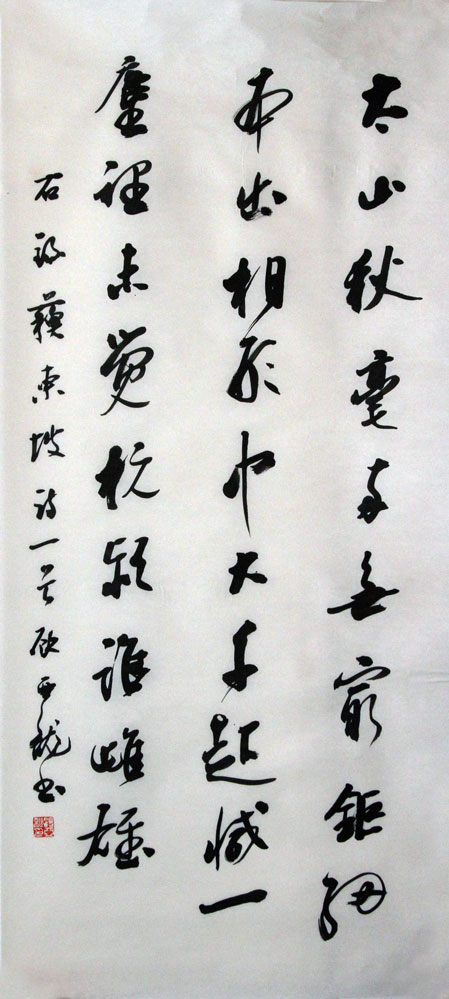 太山秋毫兩無窮鉅細
本出相形中大千起滅一
塵裡未覺杭潁誰雌雄
右錄蘇東坡詩一首 龍書